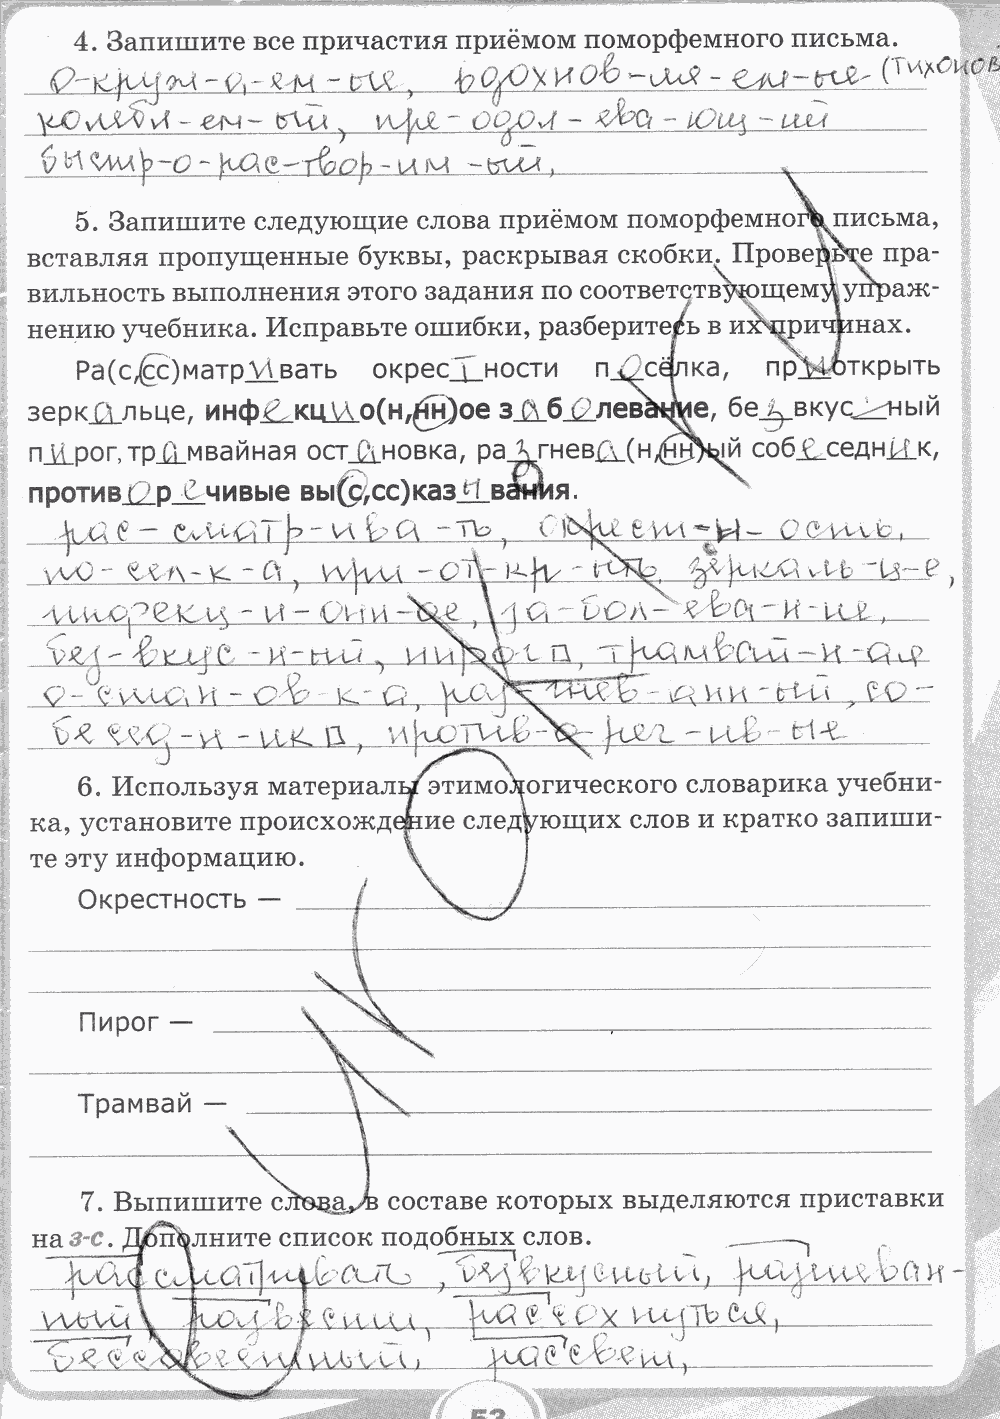 4. Запишите все причастия приёмом поморфемного письма.
о-круж-а-ем-ые, вдохнов-ля-ем-ые (Тихонов
колебл-ем-ый, пре-одол-ева-ющ-ий
быстр-о-рас-твор-им-ый,
5. Запишите следующие слова приёмом поморфемного письма,
вставляя пропущенные буквы, раскрывая скобки. Проверьте пра-
вильность выполнения этого задания по соответствующему упраж-
нению учебника. Исправьте ошибки, разберитесь в их причинах.
Ра(с,сс)матр_и_вать окрес_т_ности п_о_сёлка, пр_и_открыть
зерк_а_льце, инф_е_кц_и_о(н,нн)ое з_а_б_о_левание, бе_з_вкус_-_ный
п_и_рог, тр_а_мвайная ост_а_новка, ра_з_гнев_а_(н,нн)ый соб_е_седн_и_к,
против_о_р_е_чивые вы(с,сс)каз_ы_вания.
рас-сматр-ива-ть, окрест-н-ость,
по-сел-к-а, при-от-кр-ыть, зеркаль-ц-е,
инфекц-и-онн-ое, за-бол-ева-н-ие,
без-вкус-н-ый, пирог, трамвай-н-ая
о-стан-ов-к-а, раз-гнев-анн-ый, со-
бесед-н-ик, против-о-реч-ив-ые
6. Используя материалы этимологического словарика учебни-
ка, установите происхождение следующих слов и кратко запиши-
те эту информацию.
Окрестность —
Пирог —
Трамвай —
7. Выпишите слова, в составе которых выделяются приставки
на з-с. Дополните список подобных слов.
рассматривать, безвкусный, разгневан-
ный, развесил, рассохнуться,
бессовестный, рассвет,
53